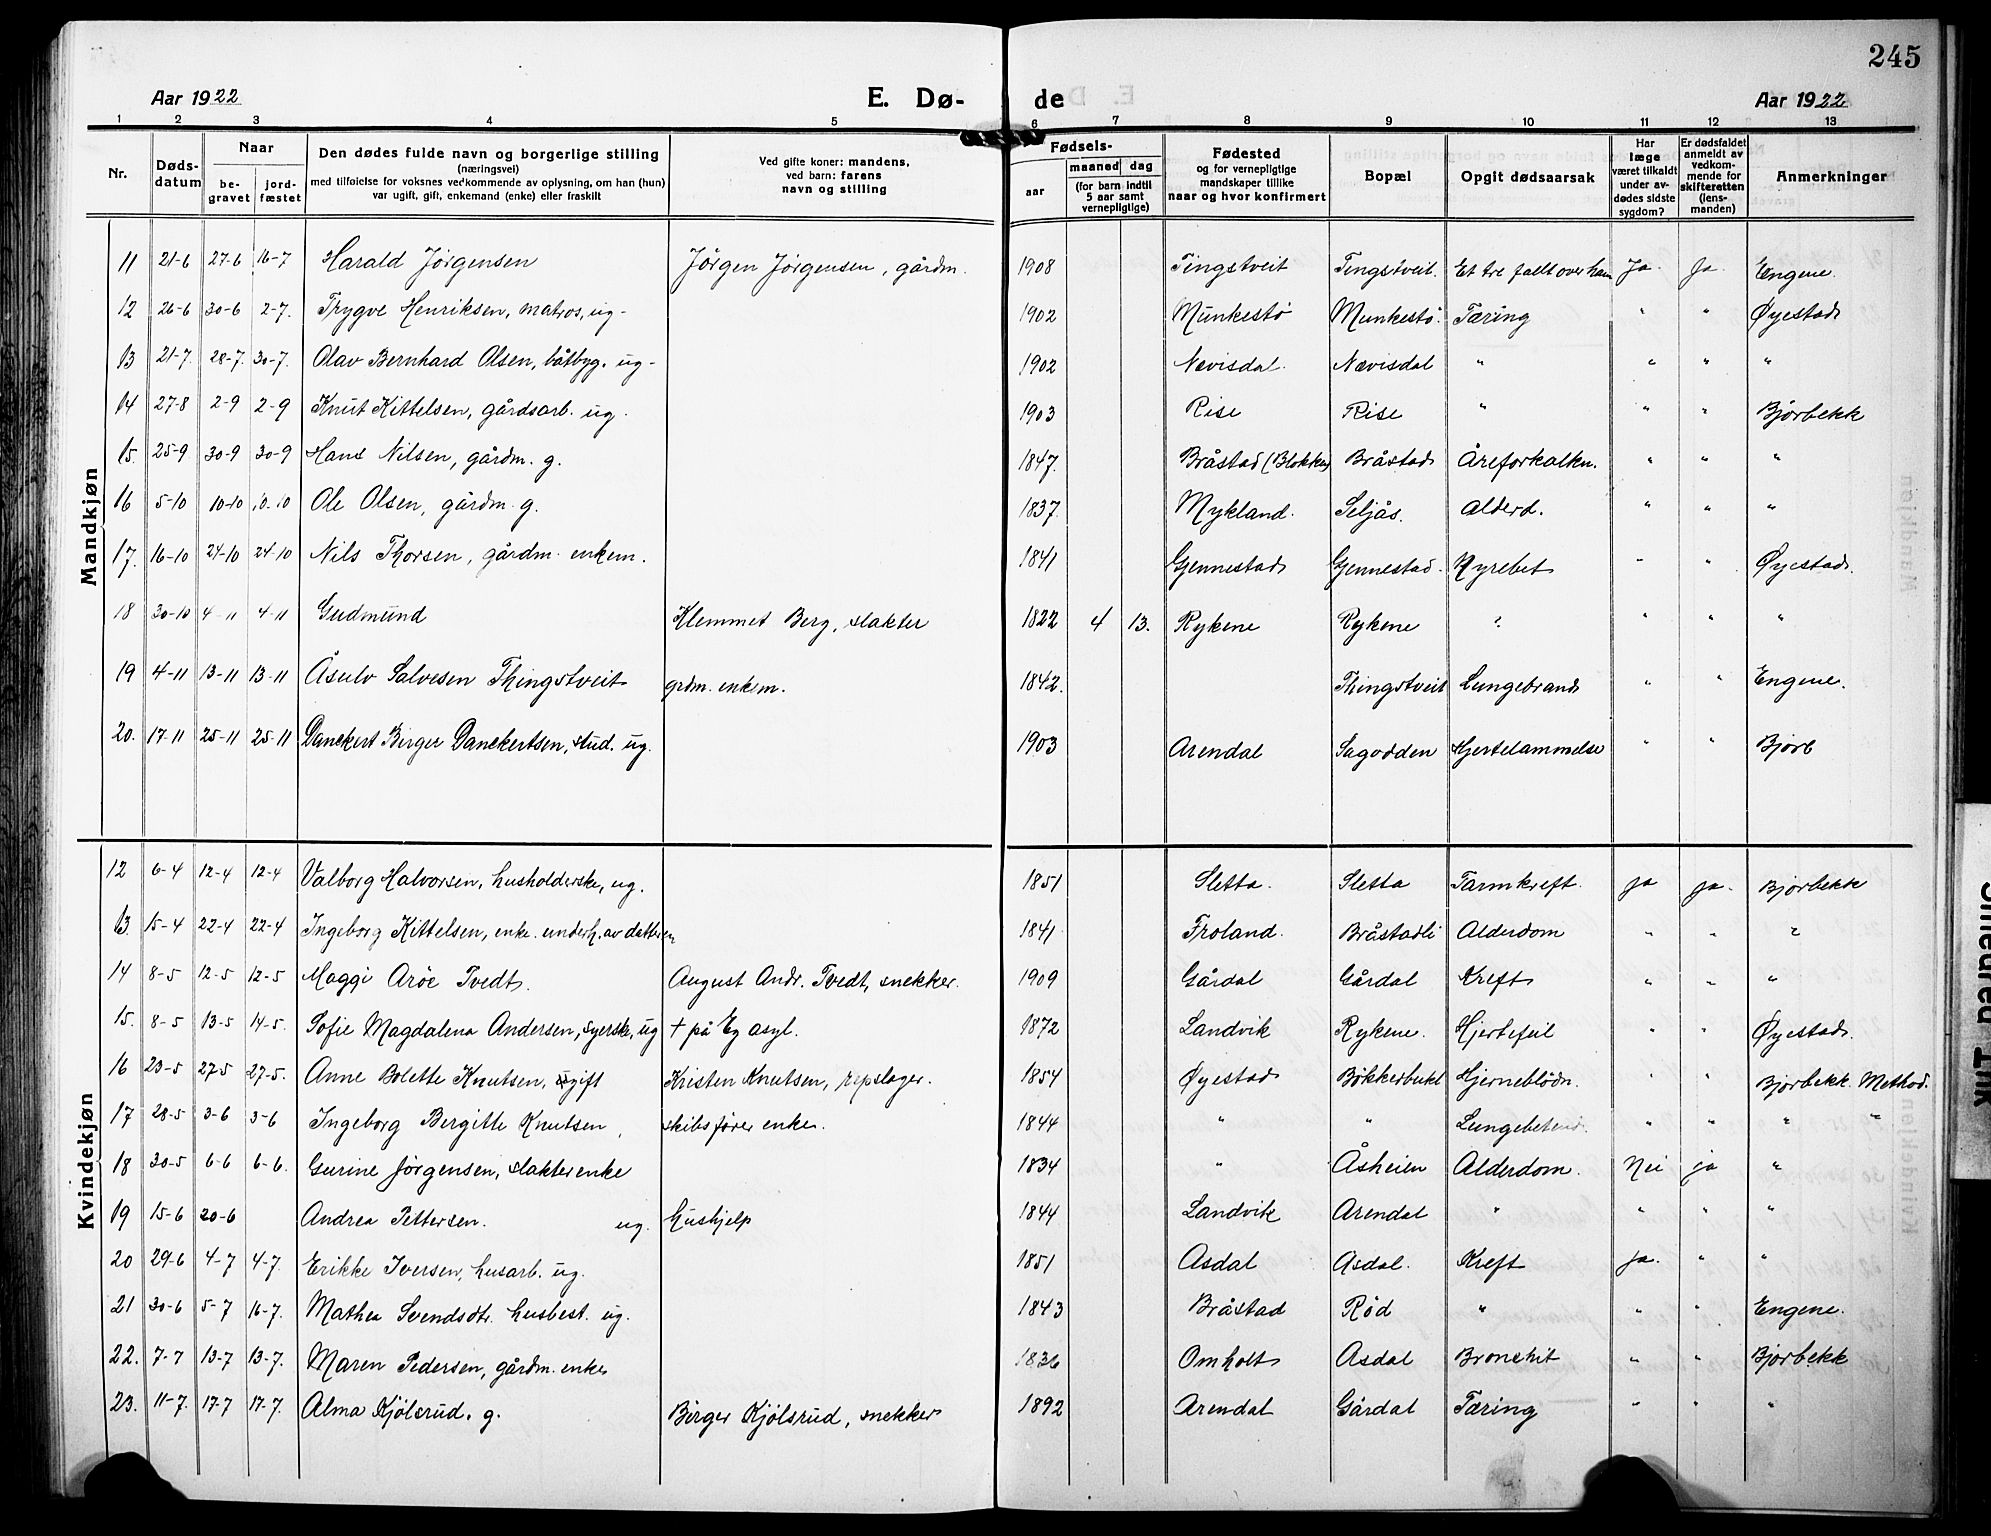 245
Aar 1922 E. Dø- de Aar 1922
1 2 3 4 5 6 7 8 9 10 11 12 13
Nr. Døds-datum Naar be-gravet jord-fæstet Den dødes fulde navn og borgerlige stilling (næringsvei) med tilføielse for voksnes vedkommende av oplysning, om han (hun) var ugift, gift, enkemand (enke) eller fraskilt Ved gifte koner: mandens, ved barn: farens navn og stilling Fødsels- aar maaned dag (for barn indtil 5 aar samt vernepligtige) Fødested og for vernepligtige mandskaper tillike naar og hvor konfirmert Bopæl Opgit dødsaarsak Har læge været tilkaldt under av-dødes sidste sygdom? Er dødsfaldet anmeldt av vedkom-mende for skifteretten (lens-manden) Anmerkninger
Mandkjøn
11 21-6 27-6 16-7 Harald Jørgensen Jørgen Jørgensen, gårdm. 1908 Tingstveit Tingstveit. Et tre faldt over ham Ja. Ja. Engene.
12 26-6 30-6 2-7. Trygve Henriksen, matros, ug- 1902 Munkestø Munkestø. Tæring " " Øyestad
13 21-7. 28-7. 30-7. Olav Bernhard Olsen, båtbyg. ug- 1902 Nævisdal. Nævisdal " " " "
14 27-8 2-9 2-9 Knut Kittelsen, gårdsarb. ug. 1903 Rise Rise " " " Bjorbekk
15. 25-9 30-9 30-9 Hans Nilsen, gårdm. g. 1847. Bråstad (Blokken) Bråstad Åreforkalkn. " " "
16 5-10 10-10 10-10 Ole Olsen, gårdm. g. 1837. Mykland. Seljås. Alderd. " " "
17. 16-10 24-10 24-10 Nils Thorsen, gårdm. enkem. 1841 Gjennestad Gjennestad. Nyrebet " " Øyestad.
18 30-10 4-11 4-11 Gudmund Klemmet Berg, slakter 1822 4 13. Rykene Rykene ? " " "
19 4-11 13-11 13-11 Åsulv Salvesen Thingstveit grdm. enkem. 1842. Thingstveit Lungebrand " " Engene.
20. 17-11 25-11 25-11 Danckert Birger Danckertsen, stud. ug. 1903 Arendal Sagodden Hjertelammelse " " Bjorb
Kvindekjøn
12 6-4 12-4 12-4 Valborg Halvorsen, husholderske, ug. 1851 Sletta. Sletta Tarmkreft. ja ja. Bjorbekk
13. 15-4 22-4 22-4 Ingeborg Kittelsen, enke. underh. av datteren 1841 Froland. Bråstadli Alderdom " " "
14 8-5 12-5 12-5 Maggi Aröe Tvedt. August Andr. Tvedt, snekker. 1909 Gårdal Gårdal Kreft " " "
15. 8-5 13-5 14-5. Sofie Magdalena Andersen, syerske, ug † på Eg asyl. 1872 Landvik Rykene. Hjertefeil " " Øyestad.
16 23-5 27-5 27-5. Anne Bolette Knutsen, gift Kristen Knutsen, repslager. 1854 Øyestad Bøkkerbukt Hjerneblödn. " " Bjorbekk. Method.
17 28-5 3-6 3-6 Ingeborg Bergitte Knutsen, skibsfører enke. 1844 " " " " " "
18 30-5 6-6 6-6. Gurine Jørgensen, slakter enke 1834 " Åsheien Alderdom. Nei ja "
19 15-6 20-6 Andrea Pettersen. ug. hushjelp 1844 Landvik Arendal " " " "
20 29-6 4-7 4-7. Erikke Iversen, husarb. ug. 1851 Asdal Asdal. Kreft ja. " "
21 30-6 5-7 16-7. Mathea Svendsdtr. husbest. ug. 1843 Bråstad Röd " " " Engene.
22. 7-7 13-7 13-7. Maren Pedersen, gårdm. enke 1836 Omholt Asdal Bronchit " " Bjorbekk
23. 11-7. 17-7 17-7. Alma Kjölsrud. g. Birger Kjölsrud, snekker 1892 Arendal Gårdal Tæring " " "